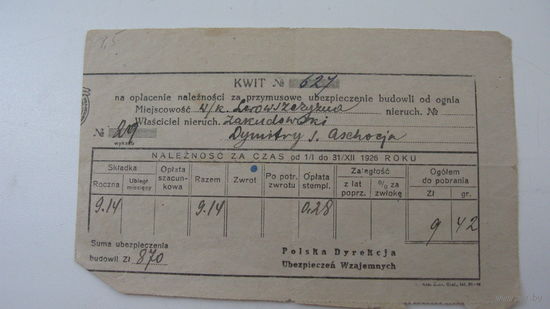 1,5
KWIT № 627
na opłacenie należności za przymusowe ubezpieczenie budowli od ognia
Miejscowość w/k. nieruch. №
Właściciel nieruch. Zakudowski
№ 29 Dymitry s.
wykazu
NALEŻNOŚĆ ZA CZAS od 1/I do 31/XII 1926 ROKU
Składka Opłata szacunkowa Razem Zwrot Po potr. zwrotu Opłata stempl. Zaległość Ogółem do pobrania
Roczna Ubiegł. miesięcy z lat poprz. % za zwłokę Zł gr.
9.14 9.14 0.28 9 42
Suma ubezpieczenia
budowli Zł 870
Polska Dyrekcja
Ubezpieczeń Wzajemnych